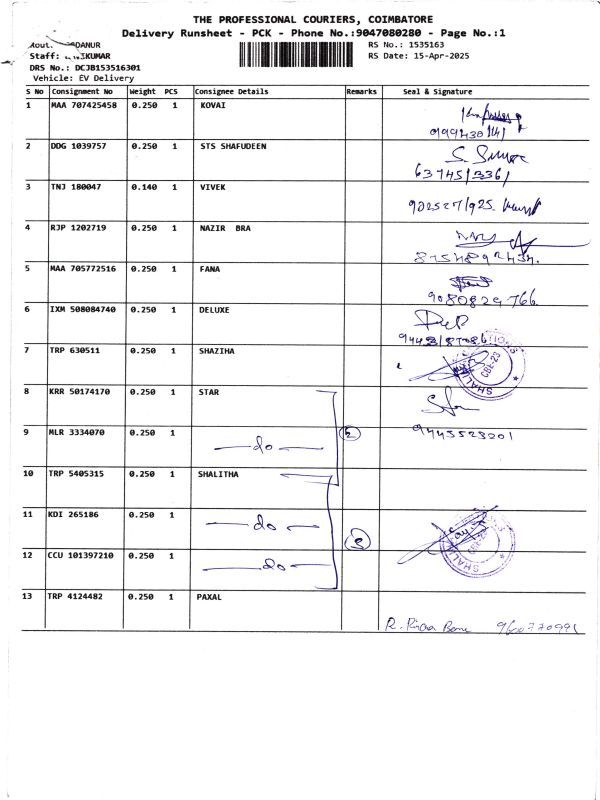 THE PROFESSIONAL COURIERS, COIMBATORE
Delivery Runsheet - PCK - Phone No.:9047080280 - Page No.:1
RS No.: 1535163
Staff: KUMAR
RS Date: 15-Apr-2025
DRS No.: DCJB153516301
Vehicle: EV Delivery
S No Consignment No Weight PCS Consignee Details Remarks Seal & Signature
1 MAA 707425458 0.250 1 KOVAI
2 DDG 1039757 0.250 1 STS SHAFUDEEN
3 TNJ 180047 0.140 1 VIVEK
4 RJP 1202719 0.250 1 NAZIR BRA
5 MAA 705772516 0.250 1 FANA
9080829766
6 IXM 508084740 0.250 1 DELUXE
7 TRP 630511 0.250 1 SHAZIHA
CBE-23
8 KRR 50174170 0.250 1 STAR
9 MLR 3334070 0.250 1 do
9443523201
10 TRP 5405315 0.250 1 SHALITHA
11 KDI 265186 0.250 1 do 3
12 CCU 101397210 0.250 1 do
13 TRP 4124482 0.250 1 PAXAL